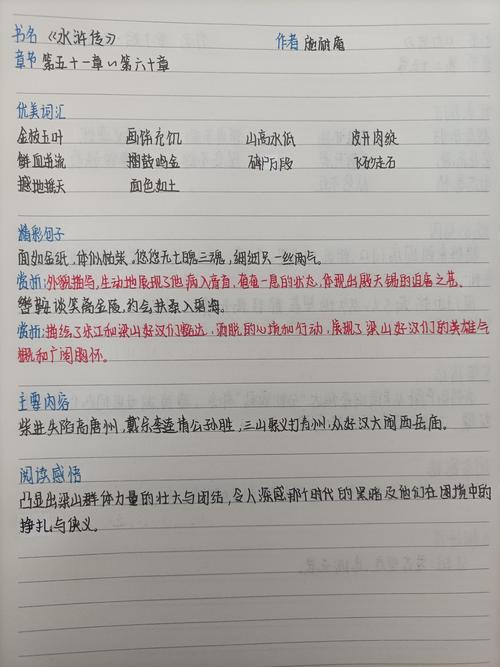 书名 《水浒传》 作者 施耐庵
章节 第五十一章~第六十章
优美词汇
金枝玉叶 画饼充饥 山高水低 皮开肉绽
鲜血迸流 擂鼓鸣金 碎尸万段 飞砂走石
撼地摇天 面色如土
精彩句子
面如金纸,体似枯柴,悠悠无七魄三魂,细细只一丝两气。
赏析:外貌描写,生动地展现了他病入膏肓,奄奄一息的状态,体现出殷天锡的迫害之甚。
谈笑高金陵,约会扶桑入碧海。
赏析:描绘了宋江和梁山好汉们豁达,洒脱的心境和行动,展现了梁山好汉们的英雄气
概和广阔胸怀。
主要内容
柴进失陷高唐州,戴宗李逵请公孙胜,三山聚义打青州,众好汉大闹西岳庙。
阅读感悟
凸显出梁山群体力量的壮大与团结,令人深感那个时代的黑暗及他们在困境中的
挣扎与侠义。